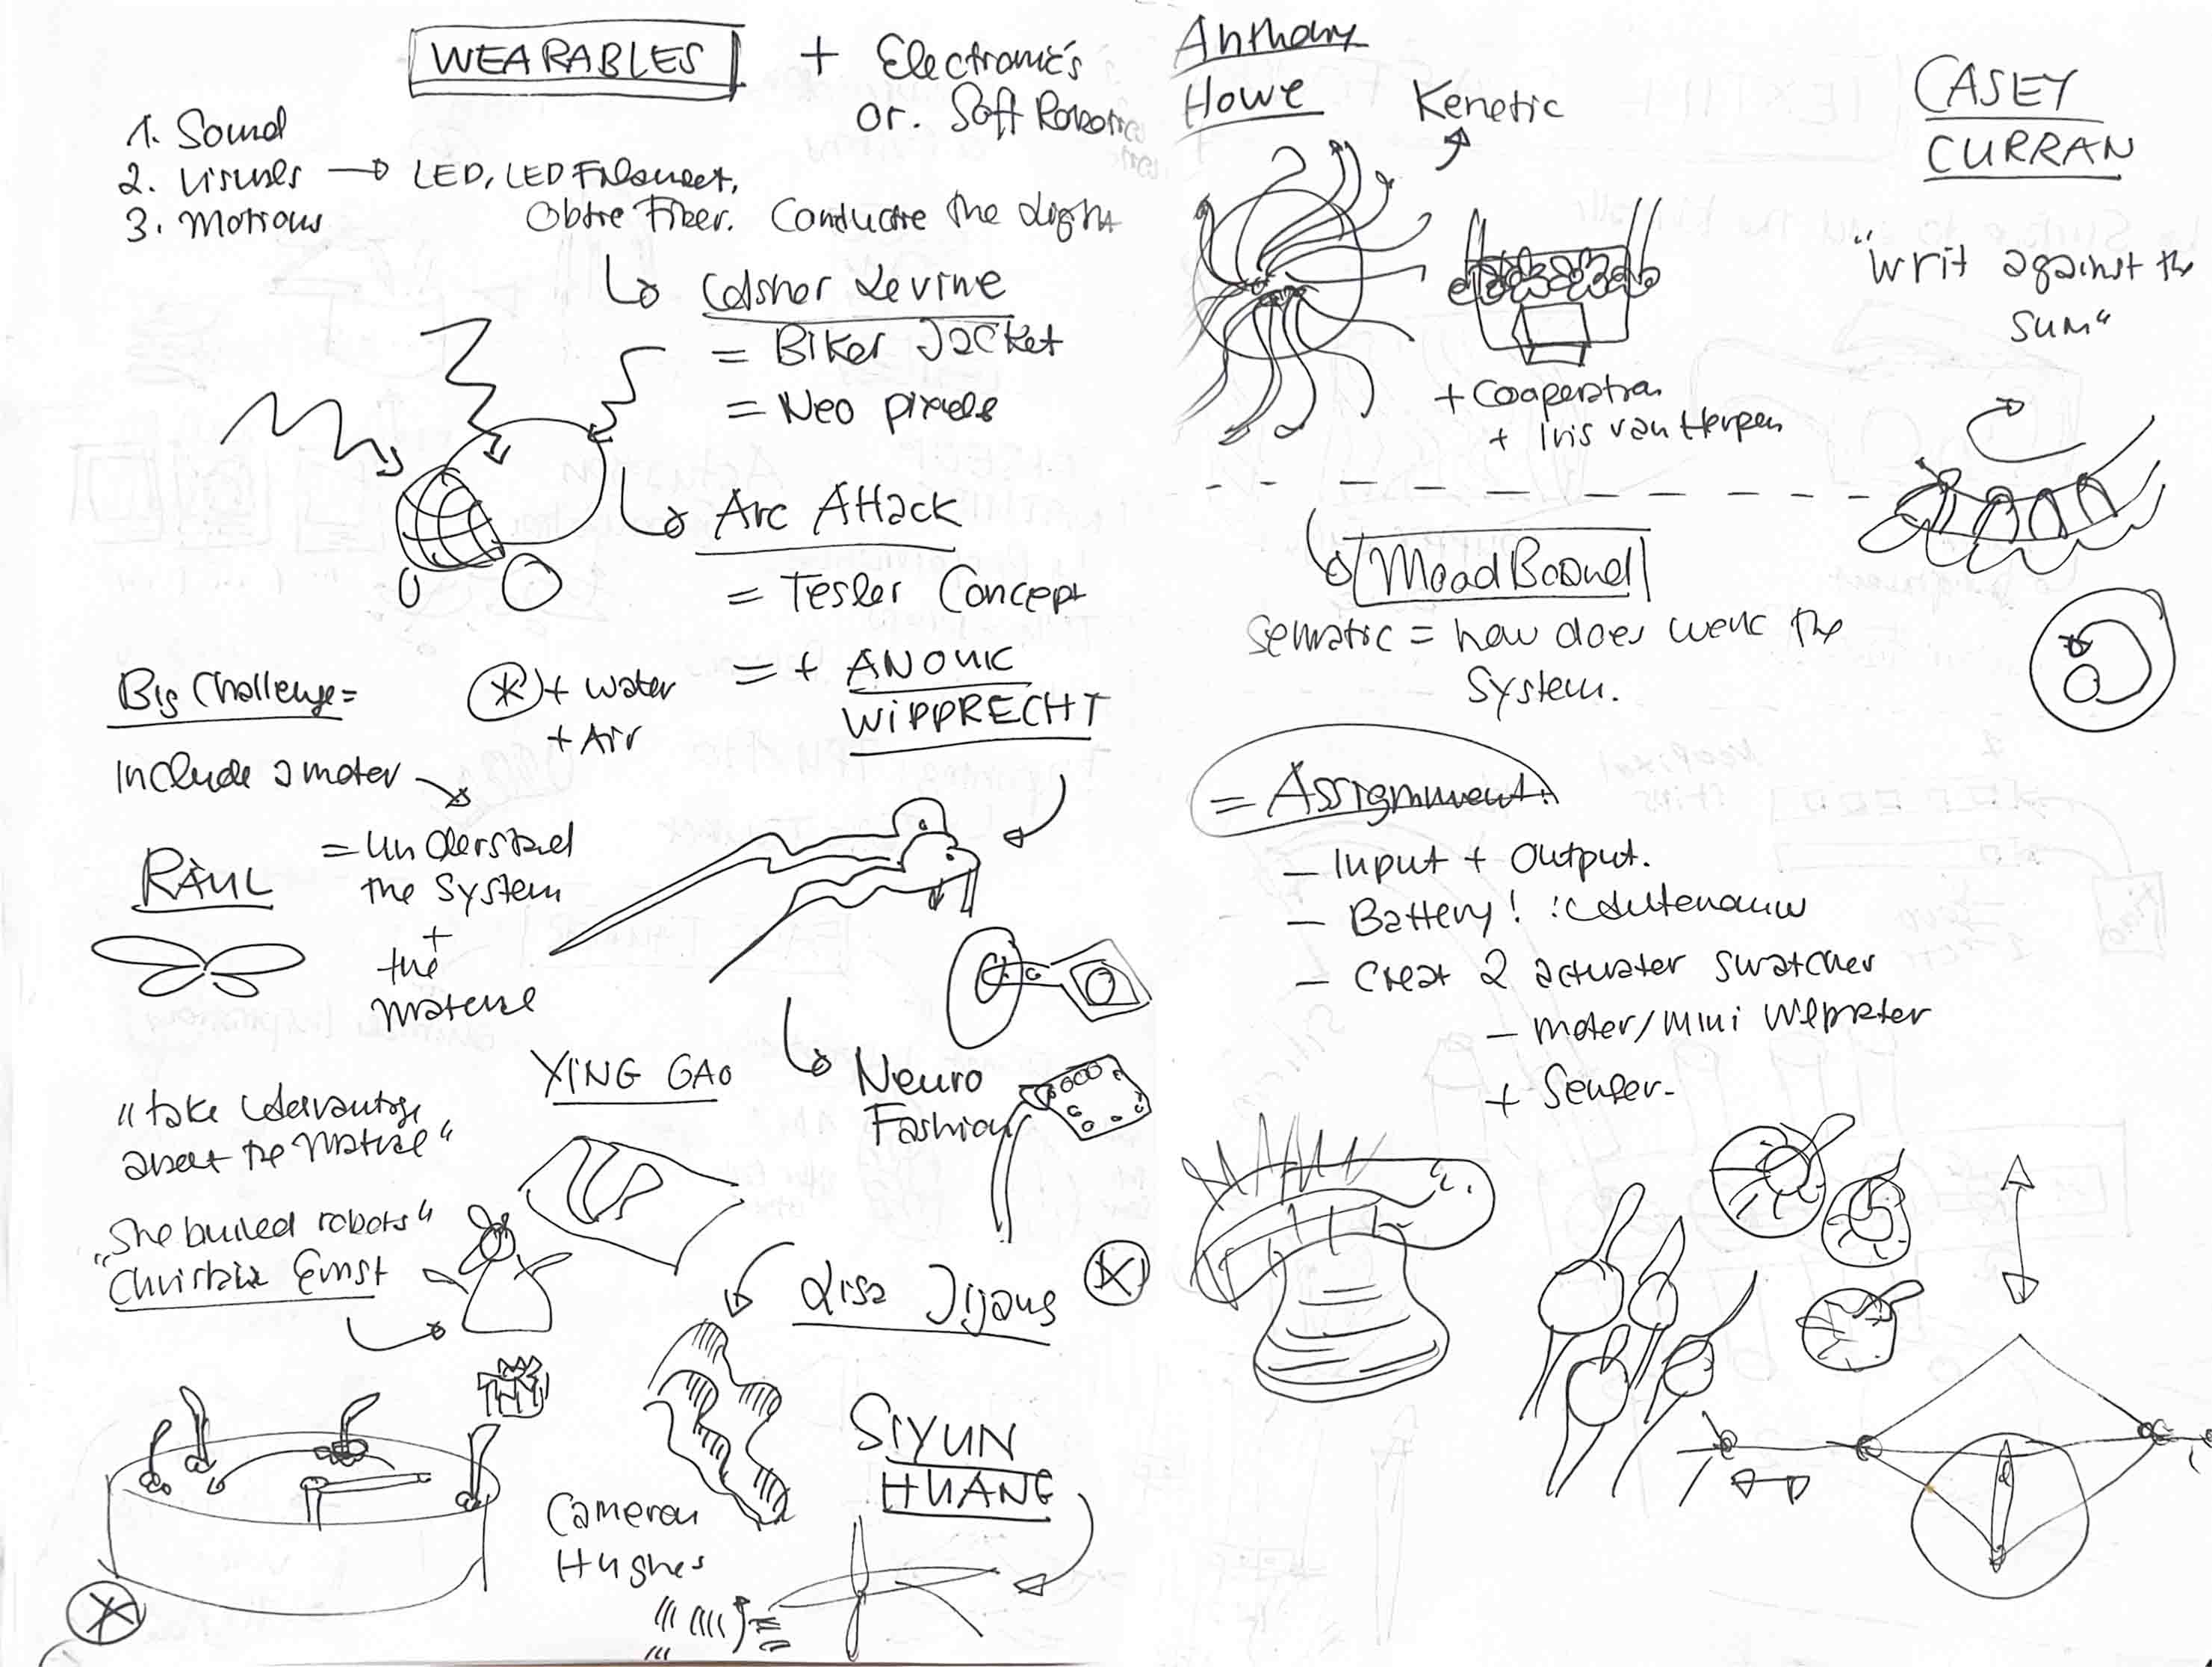 WEARABLES + Electronic's
or. Soft Robotic
1. Sound
2. Visuals → LED, LED Filament,
3. Motions
Fiber. Conducte the Light
Levine
= Biker Jacket
= Neo pixels
Arc Attack
= Tesler Concept
= + ANOUK
WIPPRECHT
Big Challenge =
+ water
+ Air
include a moter
RAUL
= understand
the System
+
the
material
YING GAO
Neuro
Fashion
"take advantage
about the
"She builed robots"
Ernst
Lisa Jijang
SIYUN
HUANG
Cameron
Hughes
Anthony
Howe
Kenetic
+ Cooperation
+ Iris van Herpen
CASEY
CURRAN
"Writ against the
sum"
MoodBoard
Sematic = how does werk the
System.
= Assignment:
– Input + Output.
– Battery!
– Creat 2 actuater swatches
– moter/mini
+ Senser.